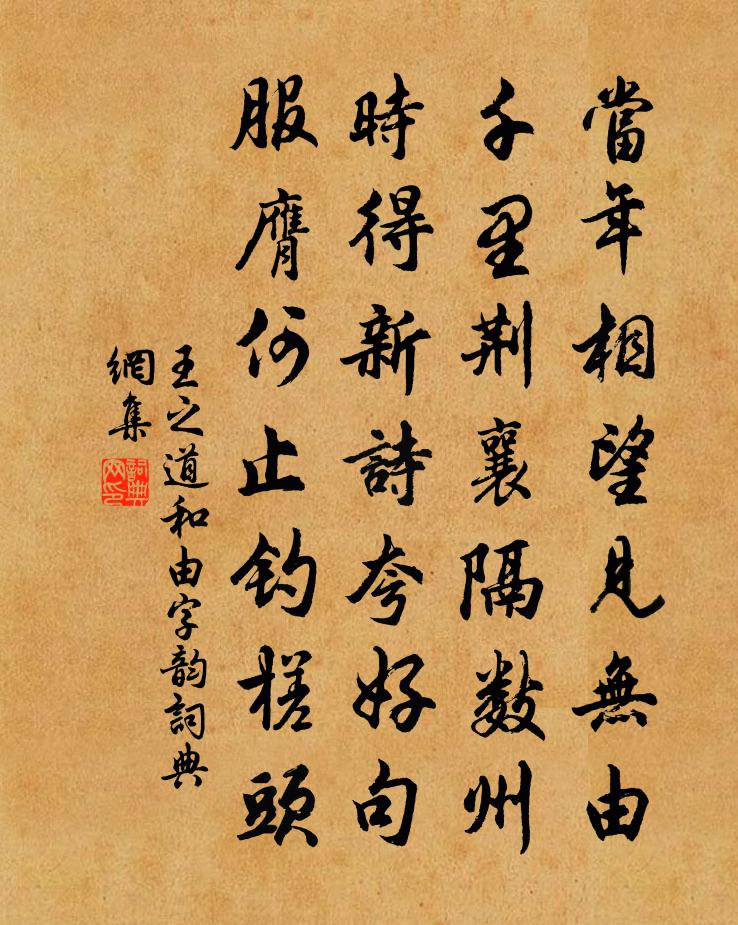 當年相望見無由
千里荆襄隔數州
時得新詩夸好句
服膺何止釣槎頭
王之道和由字韵詞典
網集
詞典網印